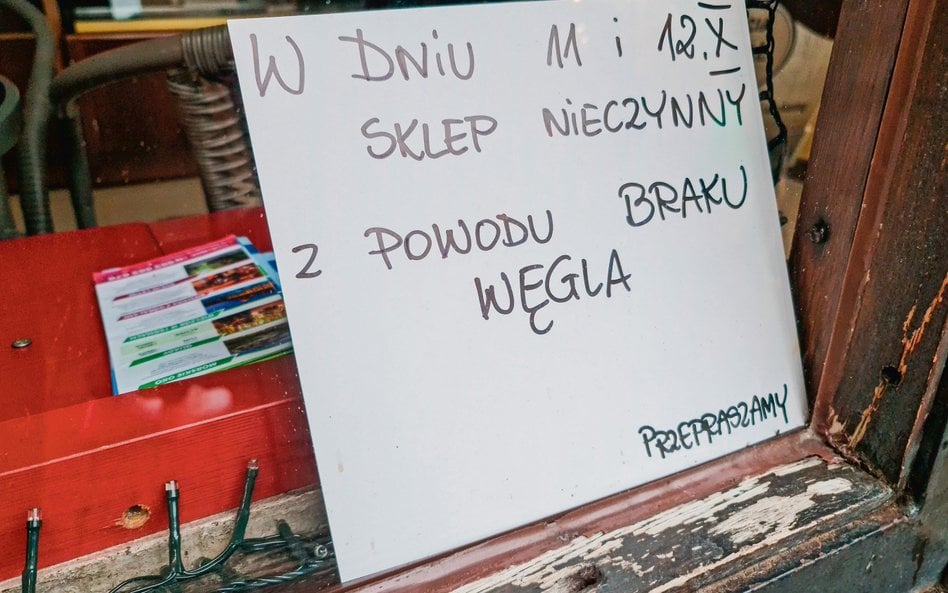 W DNiU 11 i 12.X
SKLEP NiECZYNNY
Z POWODU BRAKU
WĘGLA
PRZEPRASZAMY
MORSKIE OKO